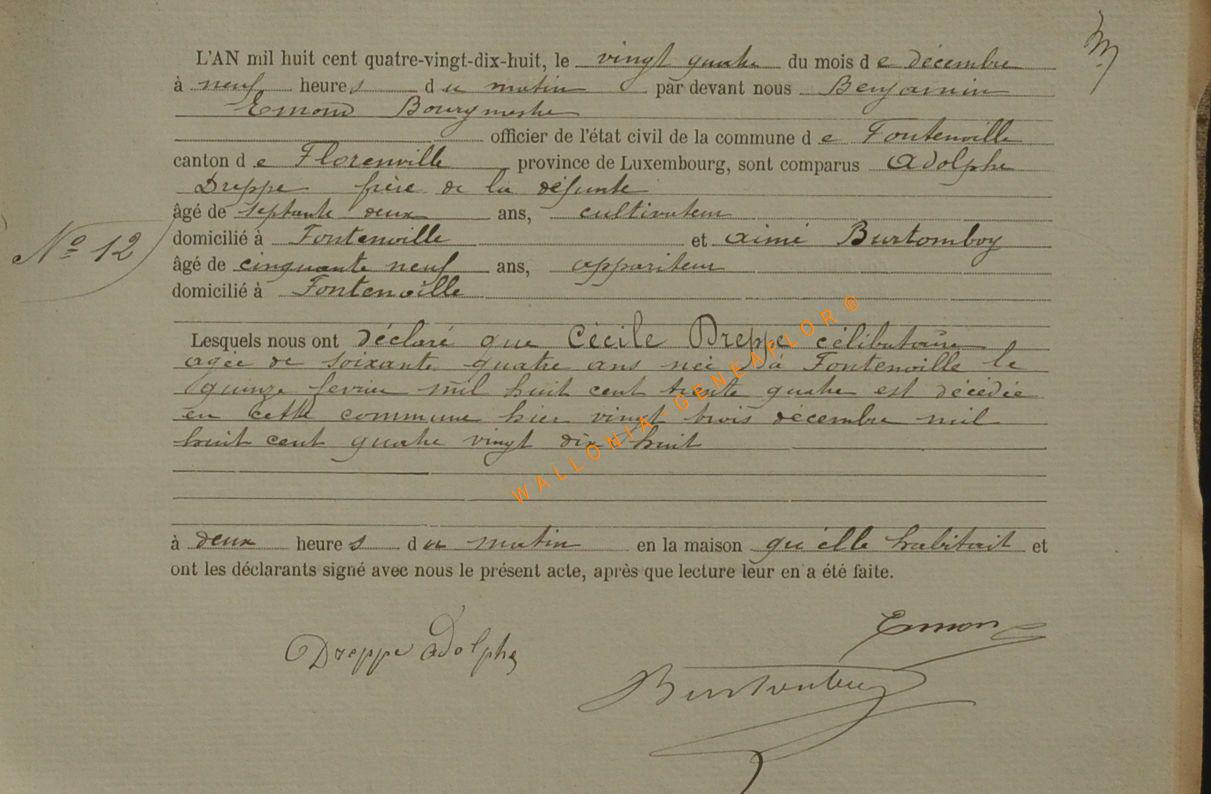 L'AN mil huit cent quatre-vingt-dix-huit, le vingt quatre du mois de décembre
à neuf heures du matin par devant nous Benjamin
Emond Bourgmestre
officier de l'état civil de la commune de Fontenoille
canton de Florenville province de Luxembourg, sont comparus Adolphe
Dreppe frère de la défunte
âgé de septante deux ans, cultivateur
domicilié à Fontenoille et Aimé Burtomboy
N° 12
âgé de cinquante neuf ans, appariteur
domicilié à Fontenoille
Lesquels nous ont déclaré que Cécile Dreppe célibataire
agée de soixante quatre ans née à Fontenoille le
quinze fevrier mil huit cent trente quatre est décédée
en cette commune hier vingt trois décembre mil
huit cent quatre vingt dix huit
WALLONIA-GENEAFLOR©
à deux heures du matin en la maison qu'elle habitait et
ont les déclarants signé avec nous le présent acte, après que lecture leur en a été faite.
Emond
Dreppe Adolphe
Burtomboy